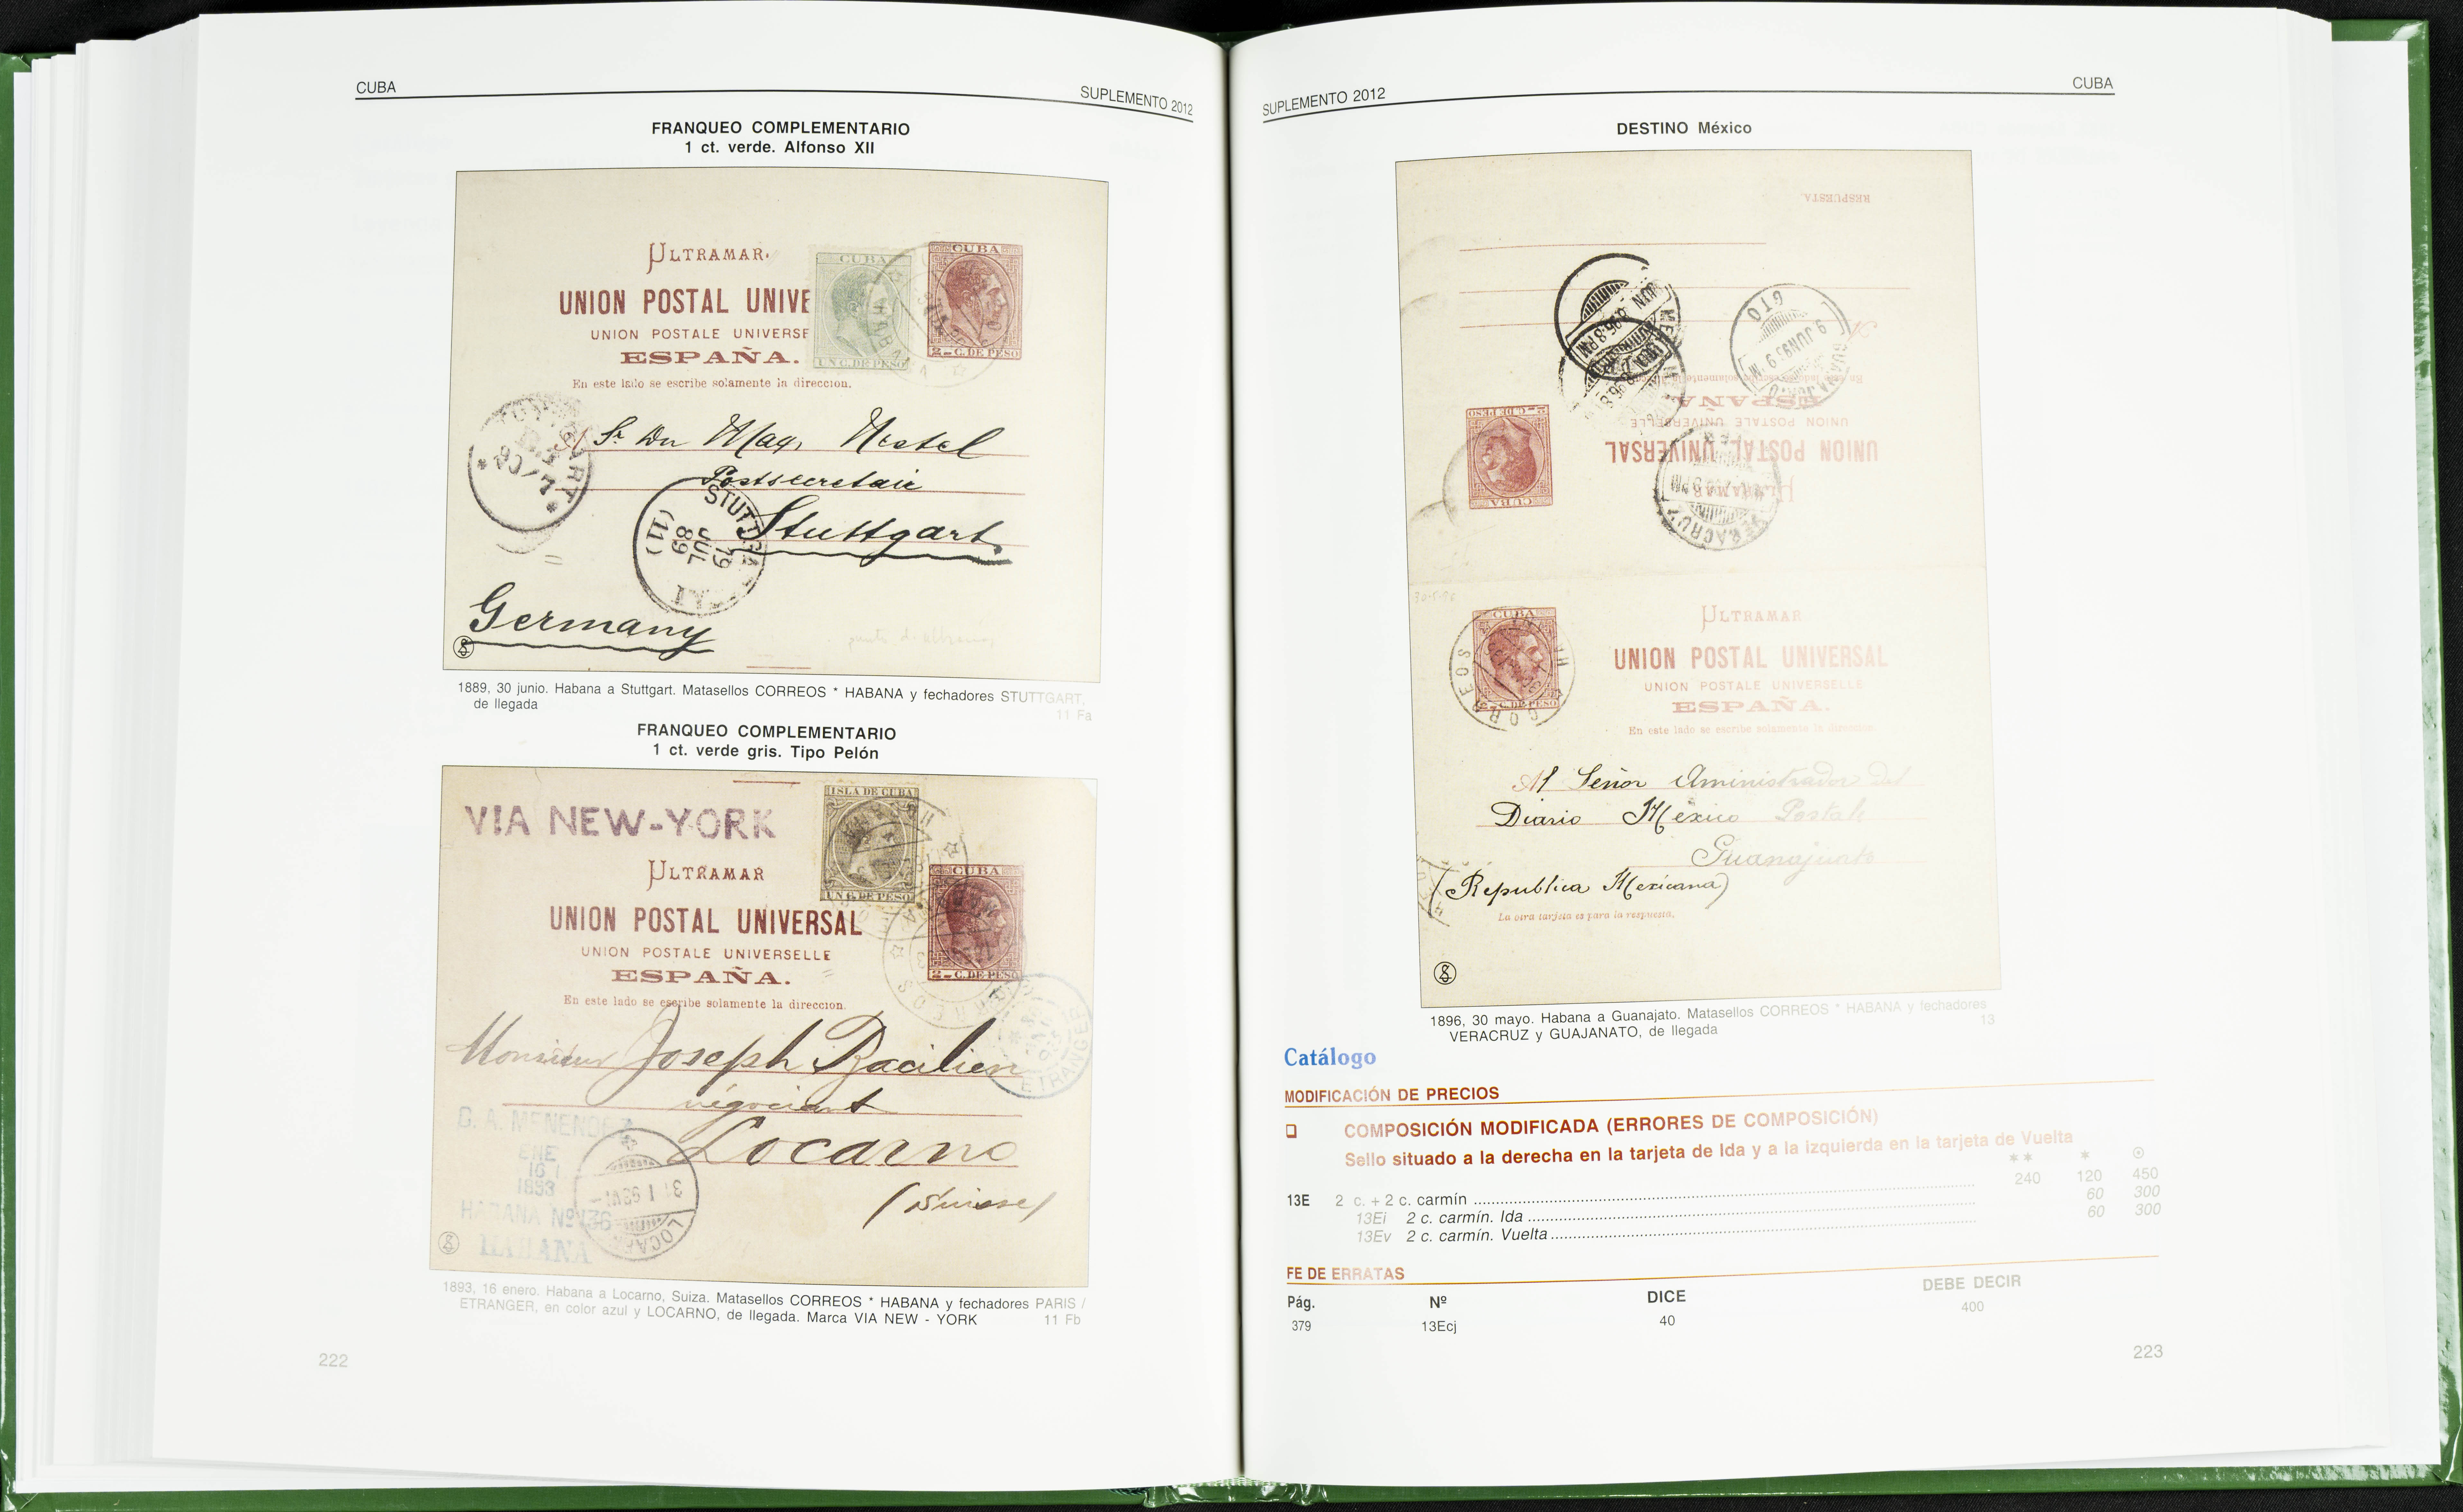 CUBA
SUPLEMENTO 2012
FRANQUEO COMPLEMENTARIO
1 ct. verde. Alfonso XII
ULTRAMAR.
CUBA
CUBA
UNION POSTAL UNIVE
UNION POSTALE UNIVERSE
ESPAÑA.
UN C. DE PESO
2 - C. DE PESO
En este lado se escribe solamente la direccion.
Postsecretair
Stuttgart
STUTTGART
19
JUL
89
(11)
Germany
1889, 30 junio. Habana a Stuttgart. Matasellos CORREOS * HABANA y fechadores STUTTGART,
de llegada
11 Fa
FRANQUEO COMPLEMENTARIO
1 ct. verde gris. Tipo Pelón
VIA NEW-YORK
ISLA DE CUBA
UN C. DE PESO
ULTRAMAR
CUBA
UNION POSTAL UNIVERSAL
UNION POSTALE UNIVERSELLE
ESPAÑA.
2 - C. DE PESO
En este lado se escribe solamente la direccion.
CORREOS
ETRANGER
Monsieur Joseph Bacilieri
négociant
Locarno
(Suisse)
G. A. MENENDEZ
ENE
16
1893
HABANA Nº 136
HABANA
1893, 16 enero. Habana a Locarno, Suiza. Matasellos CORREOS * HABANA y fechadores PARIS /
ETRANGER, en color azul y LOCARNO, de llegada. Marca VIA NEW - YORK
11 Fb
222
SUPLEMENTO 2012
CUBA
DESTINO México
RESPUESTA.
GTO
9 JUN 96
GUANAJUATO
En este lado se escribe solamente la direccion.
ESPAÑA
UNION POSTALE UNIVERSELLE
UNION POSTAL UNIVERSAL
ULTRAMAR
2 - C. DE PESO
CUBA
VERACRUZ
30-5-96
CUBA
ULTRAMAR
UNION POSTAL UNIVERSAL
UNION POSTALE UNIVERSELLE
ESPAÑA.
C. DE PESO
CORREOS
En este lado se escribe solamente la direccion
Al Señor Aministrador del
Diario México Postal
Guanajuato
(Republica Mexicana)
La otra tarjeta es para la respuesta.
1896, 30 mayo. Habana a Guanajato. Matasellos CORREOS * HABANA y fechadores
VERACRUZ y GUAJANATO, de llegada
13
Catálogo
MODIFICACIÓN DE PRECIOS
❑ COMPOSICIÓN MODIFICADA (ERRORES DE COMPOSICIÓN)
Sello situado a la derecha en la tarjeta de Ida y a la izquierda en la tarjeta de Vuelta
** * ⊙
13E 2 c. + 2 c. carmín 240 120 450
13Ei 2 c. carmín. Ida 60 300
13Ev 2 c. carmín. Vuelta 60 300
FE DE ERRATAS
Pág. Nº DICE DEBE DECIR
379 13Ecj 40 400
223